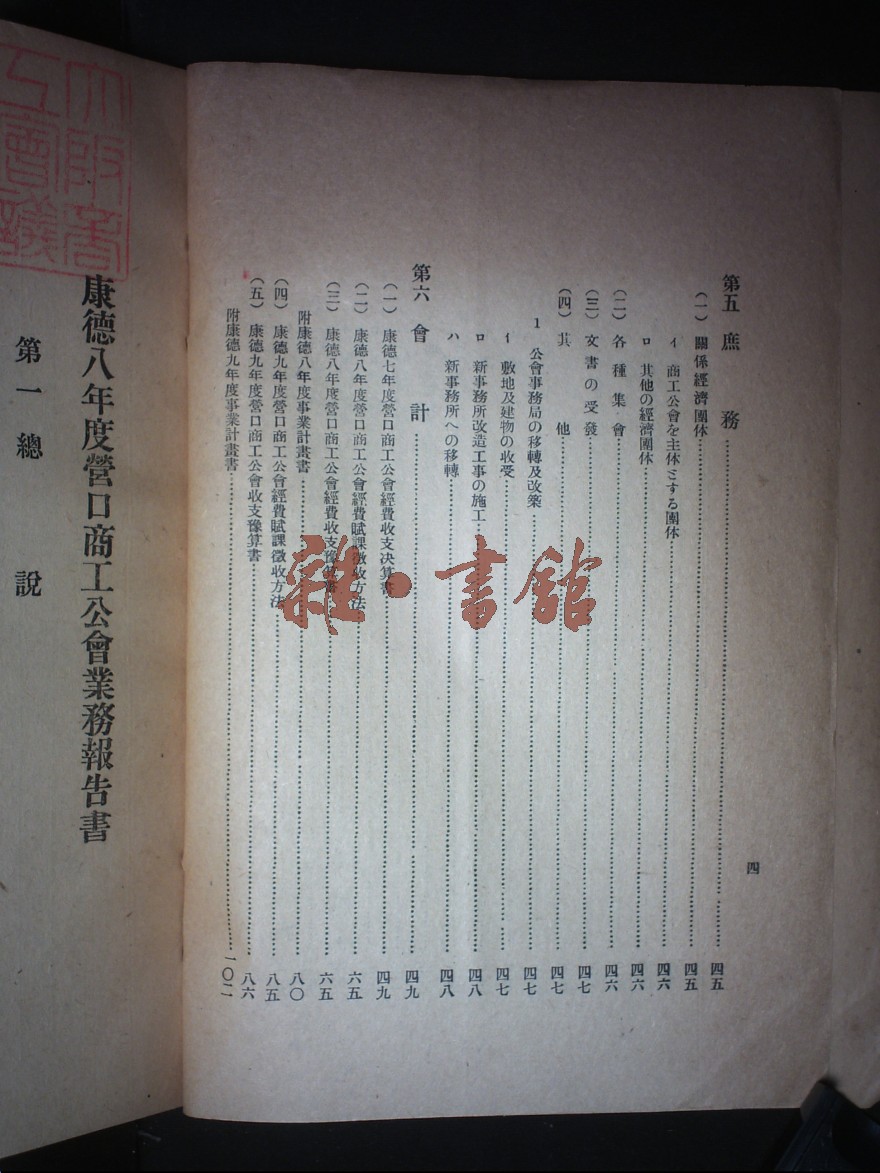 四
第五 庶務…四五
(一) 關係經濟團体…四五
イ 商工公會を主体とする團体…四六
ロ 其他の經濟團体…四六
(二) 各種集會…四六
(三) 文書の受發…四七
(四) 其他…四七
1 公會事務局の移轉及改築…四七
イ 敷地及建物の收受…四七
ロ 新事務所改造工事の施工…四八
ハ 新事務所への移轉…四八
第六 會計…四九
(一) 康德七年度營口商工公會經費收支決算書…四九
(二) 康德八年度營口商工公會經費賦課徵收方法…六五
(三) 康德八年度營口商工公會經費收支豫算書…六五
附康德八年度事業計畫書…八〇
(四) 康德九年度營口商工公會經費賦課徵收方法…八五
(五) 康德九年度營口商工公會收支豫算書…八六
附康德九年度事業計畫書…一〇二
康德八年度營口商工公會業務報告書
第一 總說
大阪商
工會議
雜·書館